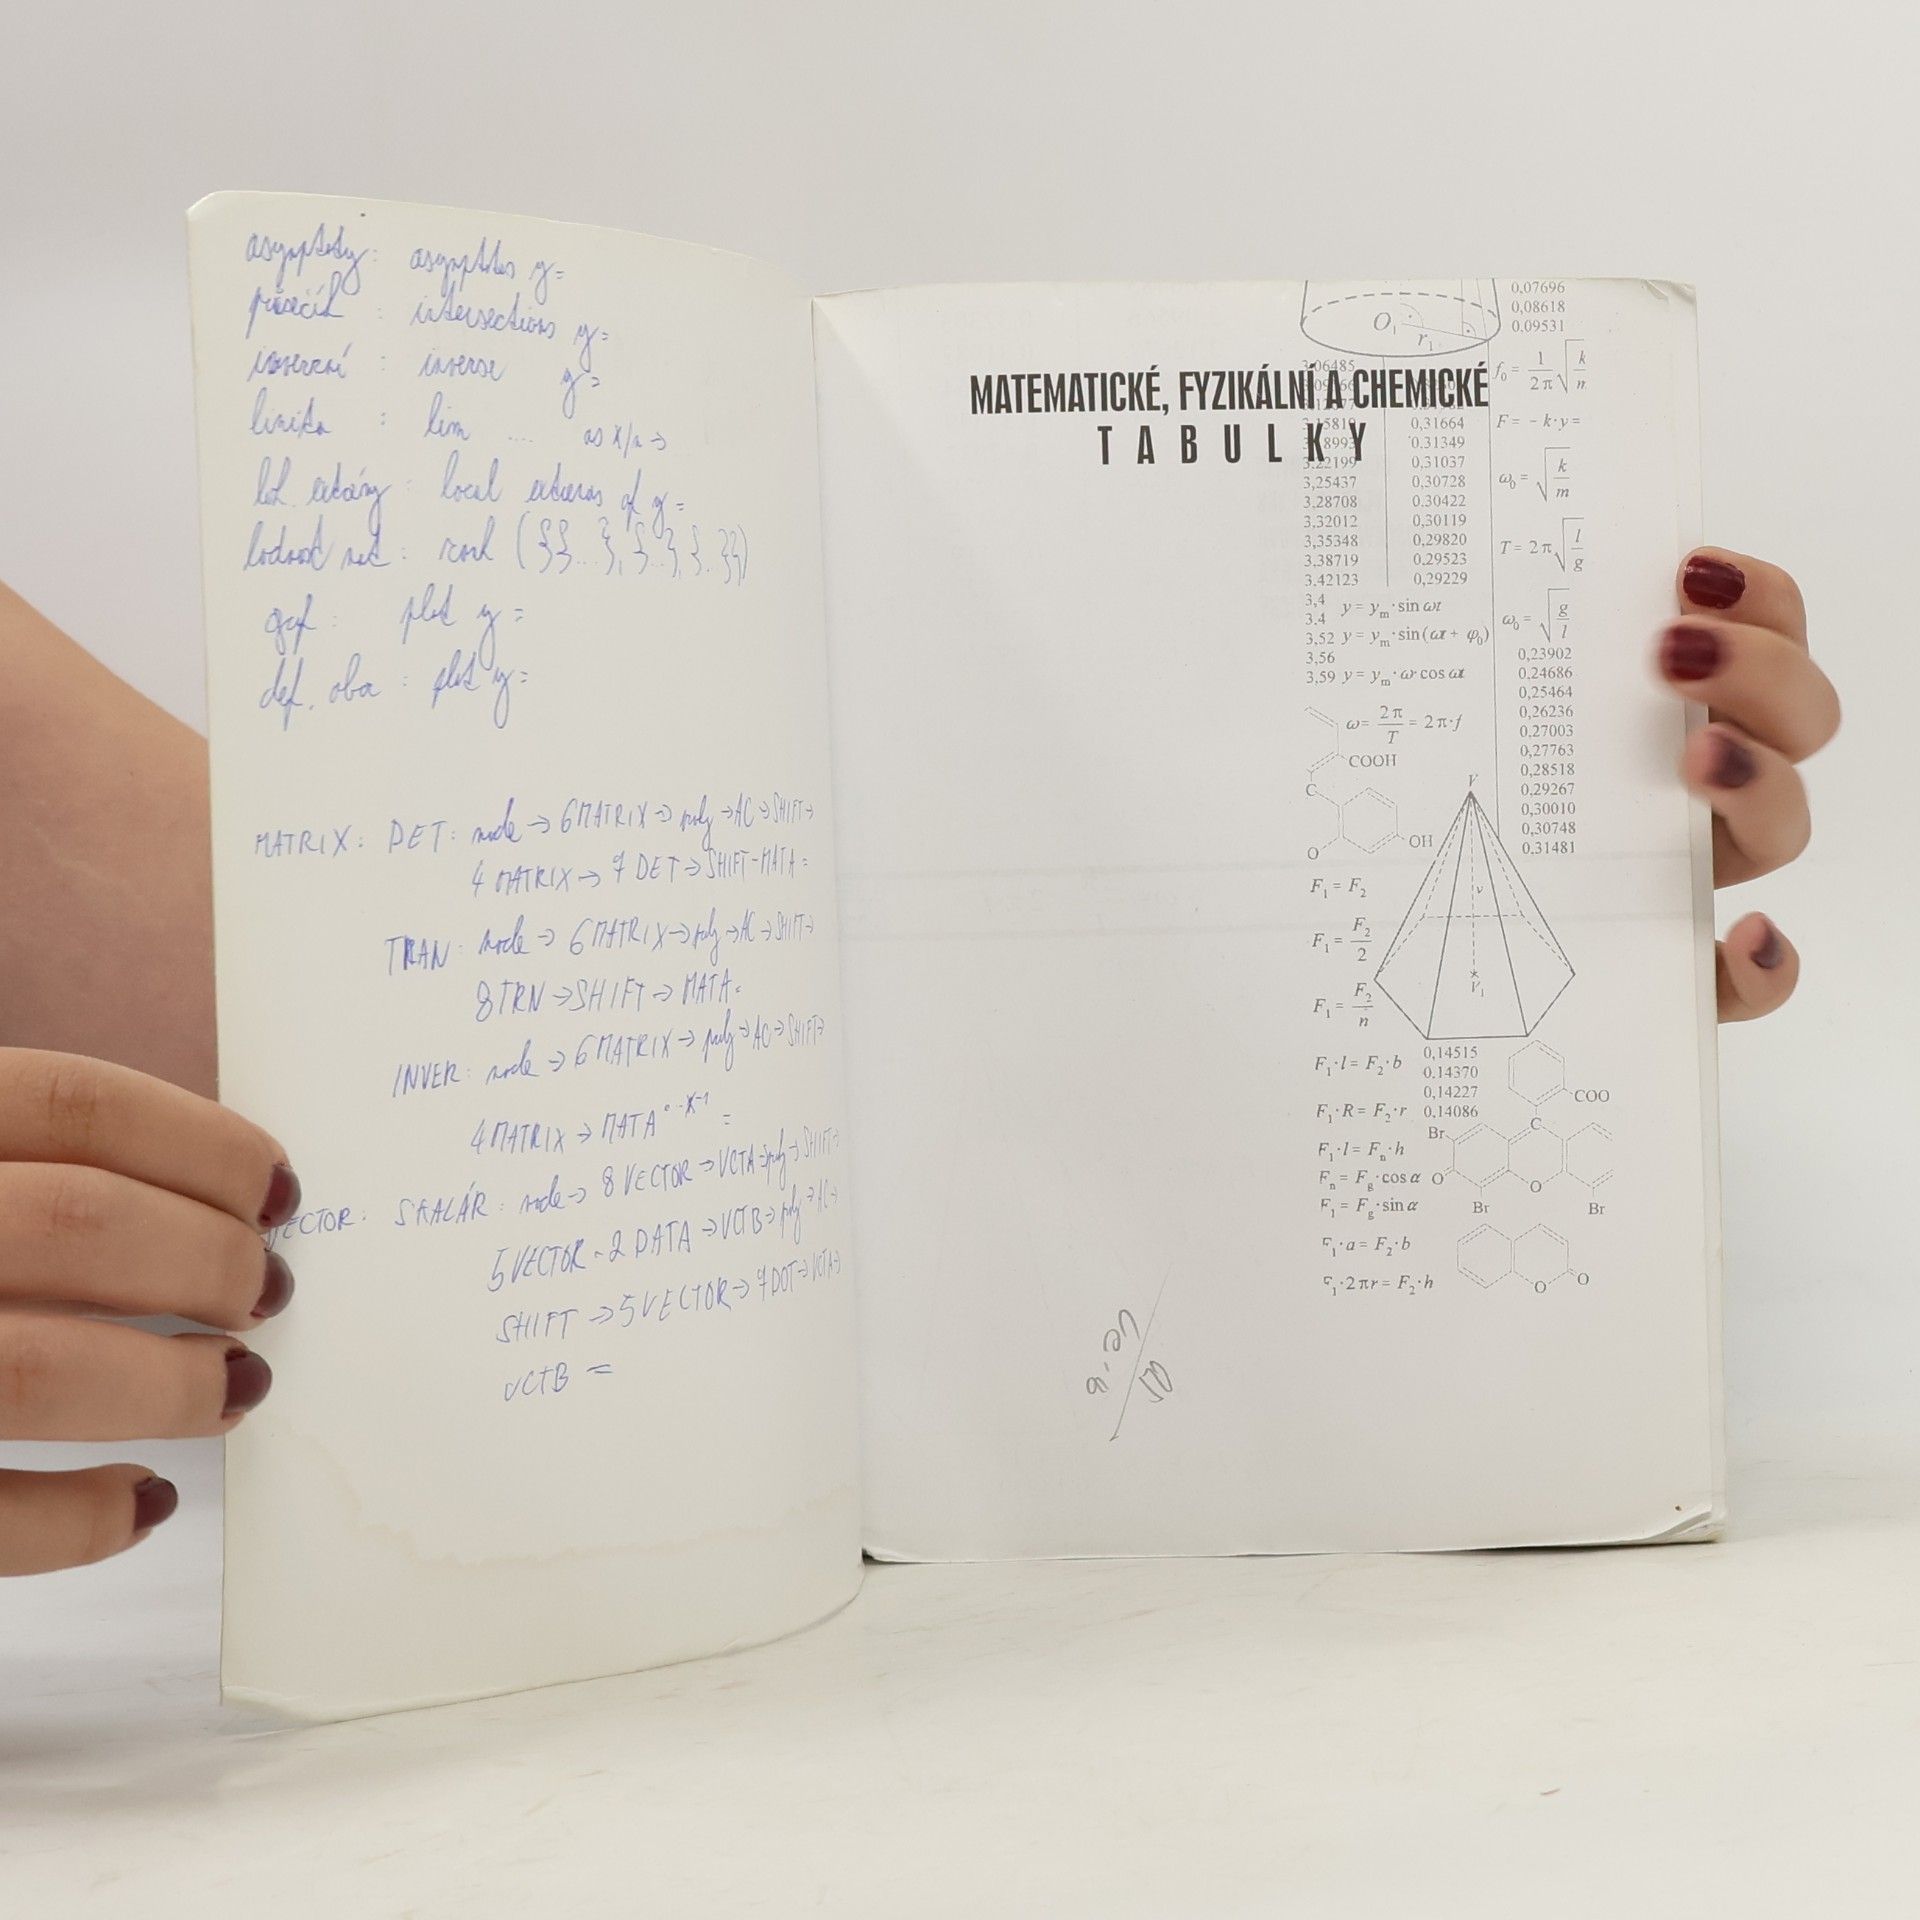 asymptoty: asymptotes y=
průsečík : intersections y=
inverzní : inverse y=
limita : lim .... as x/n →
lok. extrémy : local extrema of y=
hodnost mat : rank ({{...},{...},{..}})
graf : plot y=
def. obor : plot y=
MATRIX: DET: mode → 6MATRIX → → AC → SHIFT →
4 MATRIX → 7 DET → SHIFT-MATA =
TRAN: mode → 6MATRIX → → AC → SHIFT →
8TRN → SHIFT → MATA =
INVER: mode → 6MATRIX → → AC → SHIFT →
4MATRIX → MATA x-1 =
VECTOR: SKALÁR: mode → 8 VECTOR → VCTA → → SHIFT →
5VECTOR - 2 DATA → VCTB → → AC →
SHIFT → 5VECTOR → 7DOT → VCTA →
VCTB =
MATEMATICKÉ, FYZIKÁLNÍ A CHEMICKÉ
TABULKY
O1 r1
0,07696
0,08618
0,09531
3,06485
f0 = 1/2π √k/m
F = -k·y =
ω0 = √k/m
T = 2π √l/g
ω0 = √g/l
3,15819 0,31664
3,18993 0,31349
3,22199 0,31037
3,25437 0,30728
3,28708 0,30422
3,32012 0,30119
3,35348 0,29820
3,38719 0,29523
3,42123 0,29229
3,4 y = ym·sin ωt
3,4
3,52 y = ym·sin(ωt + φ0)
3,56
3,59 y = ym·ω cos ωt
0,23902
0,24686
0,25464
0,26236
0,27003
0,27763
0,28518
0,29267
0,30010
0,30748
0,31481
ω = 2π/T = 2π·f
COOH
C
OH
O
V
v
V1
F1 = F2
F1 = F2/2
F1 = F2/n
F1·l = F2·b
F1·R = F2·r
F1·l = Fn·h
Fn = Fg·cos α
F1 = Fg·sin α
F1·a = F2·b
F1·2πr = F2·h
0,14515
0,14370
0,14227
0,14086
COO
C
Br
O
O
Br
Br
O
O